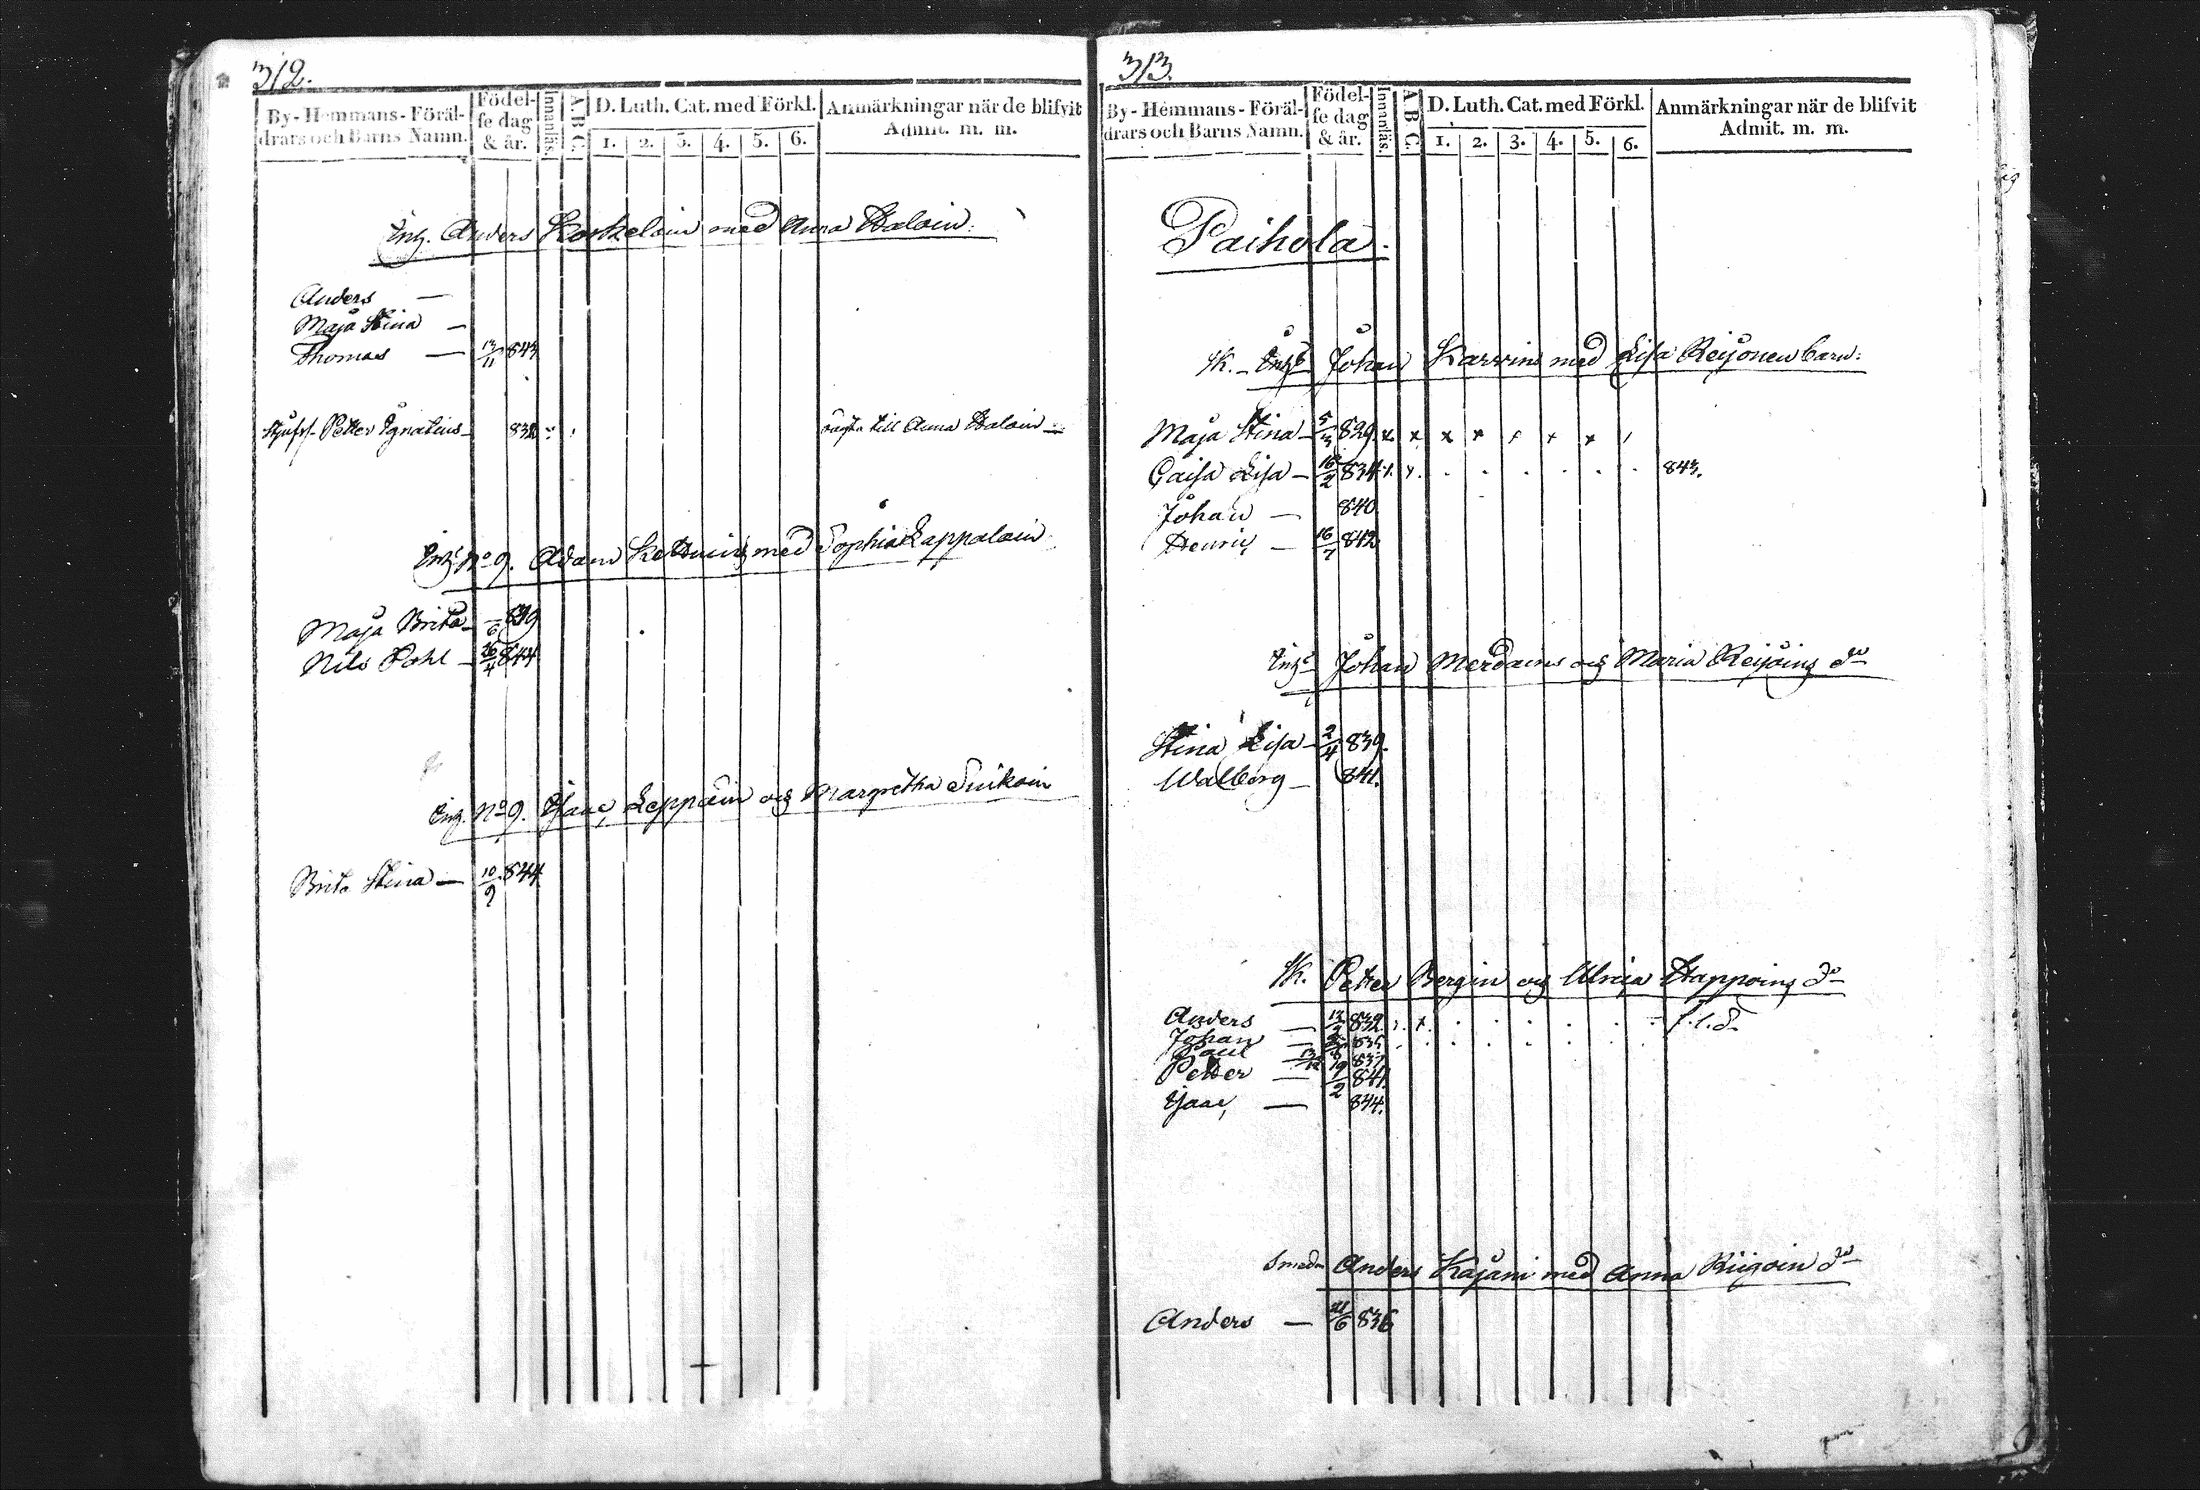 312.
By-Hemmans-Föräl-
drars och Barns Namn.
Födel-
se dag
& år.
Innanläs.
A B C.
D. Luth. Cat. med Förkl.
1. 2. 3. 4. 5. 6.
Anmärkningar när de blifvit
Admit. m. m.
Inh. Anders Koskelain med Anna Haloin.
Anders —
Maja Stina —
Thomas — 13/11 843
Petter Ignatius 832
till Anna Haloin
Inh. No 9. Adam med Sophia Lappalain
Maja Brita — /6 839
Nils Pohl — 26/4 844
Inh. No 9. Isaac Leppäin och Margretha Suikain
Brita Stina — 10/9 844
313.
By-Hemmans-Föräl-
drars och Barns Namn.
Födel-
se dag
& år.
Innanläs.
A B C.
D. Luth. Cat. med Förkl.
1. 2. 3. 4. 5. 6.
Anmärkningar när de blifvit
Admit. m. m.
Paihola.
Johan Karvin med Lisa Reijonen barn:
Maja Stina — 5/3 829. x x x x x x x
Caisa Lisa — 16/2 834 843.
Johan — 840
Henric — 16/7 842
Johan och Maria do
Stina Lisa — 2/4 839.
Walborg — 841.
Sk. Petter Bergin och Ulrica do
Anders — 832.
Johan — 835
Paul — 13/12 837.
Petter — 19/2 841.
Isaac — 844.
Smeden Anders Kajani med Anna do
Anders — 21/6 836